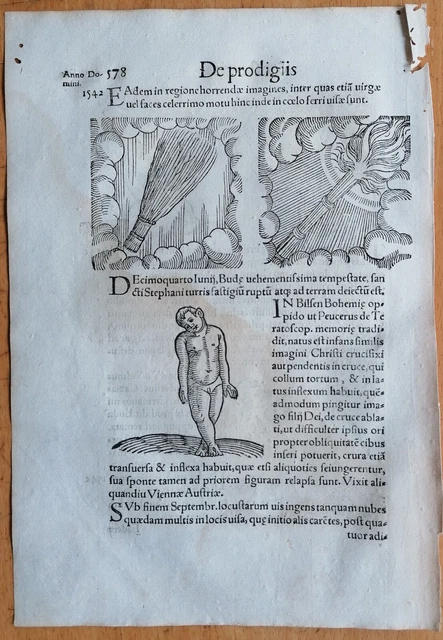 Anno Do- 578 De prodigiis
mini.
1542 EAdem in regione horrendæ imagines, inter quas etiã uirgæ
uel faces celerrimo motu hinc inde in cœlo ferri uisæ sunt.
DEcimoquarto Iunij, Budę uehementissima tempestate, san
cti Stephani turris fastigiũ ruptũ atq; ad terram deiectũ est.
IN Bilsen Bohemię op-
pido ut Peucerus de Te
ratoscop. memorię tradi-
dit, natus est infans similis
imagini Christi crucifixi
aut pendentis in cruce, qui
collum tortum, & in la-
tus inflexum habuit, quẽ-
admodum pingitur ima-
go filij Dei, de cruce abla-
ti, ut difficulter ipsius ori
propter obliquitatẽ cibus
inseri potuerit, crura etiã
transuersa & inflexa habuit, quæ etsi aliquoties seiungerentur,
sua sponte tamen ad priorem figuram relapsa sunt. Vixit ali-
quandiu Viennæ Austriæ.
SVb finem Septembr. locustarum uis ingens tanquam nubes
quædam multis in locis uisa, quę initio alis carẽtes, post qua-
tuor adi-